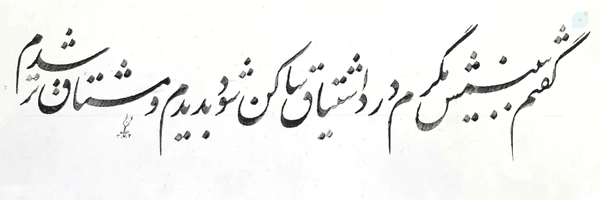 گفتم ببینمش مگرم درد اشتیاق ساکن شود بدیدم و مشتاق تر شدم